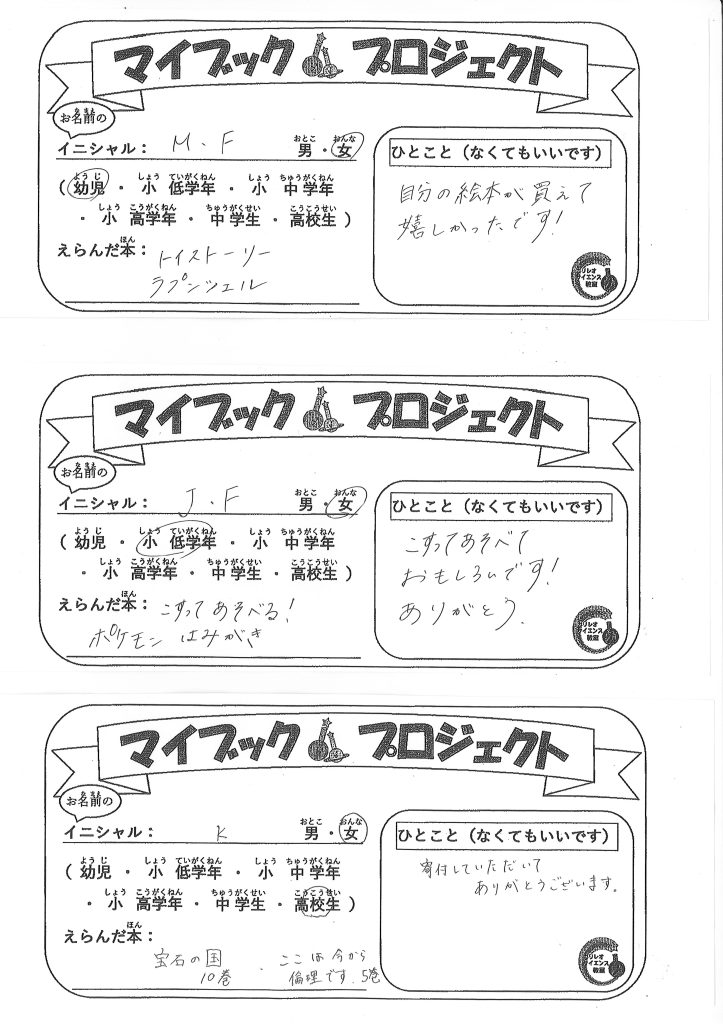 マイブック プロジェクト
お名前の
イニシャル： M．F 男・女
ひとこと（なくてもいいです）
（幼児・小 低学年・小 中学年
・小 高学年・中学生・高校生）
えらんだ本： トイストーリー
ラプンツェル
自分の絵本が買えて
嬉しかったです！
リレオ
イエンス
教室
マイブック プロジェクト
お名前の
イニシャル： J．F 男・女
ひとこと（なくてもいいです）
（幼児・小 低学年・小 中学年
・小 高学年・中学生・高校生）
えらんだ本： こすってあそべる！
ポケモン はみがき
こすってあそべて
おもしろいです！
ありがとう．
リレオ
イエンス
教室
マイブック プロジェクト
お名前の
イニシャル： K 男・女
ひとこと（なくてもいいです）
（幼児・小 低学年・小 中学年
・小 高学年・中学生・高校生）
えらんだ本：
宝石の国
10巻
・ここは今から
倫理です．5巻
寄付していただいて
ありがとうございます。
リレオ
イエンス
教室